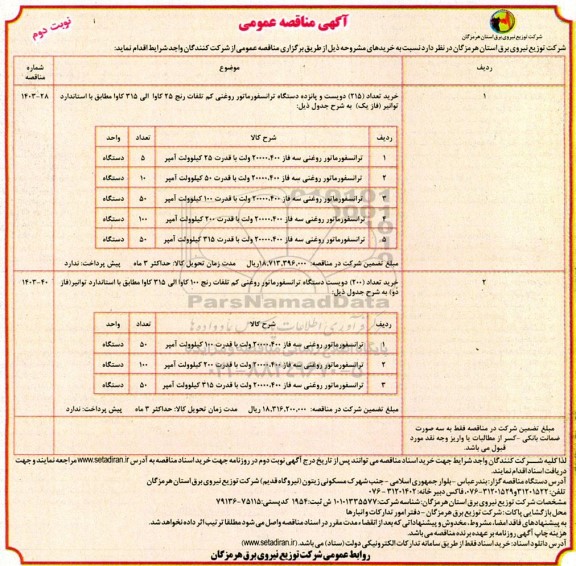 آگهی مناقصه عمومی
نوبت دوم
شرکت توزیع نیروی برق استان هرمزگان
شرکت توزیع نیروی برق استان هرمزگان در نظر دارد نسبت به خریدهای مشروحه ذیل از طریق برگزاری مناقصه عمومی از شرکت کنندگان واجد شرایط اقدام نماید:
ردیف موضوع شماره مناقصه
۱ خرید تعداد (۲۱۵) دویست و پانزده دستگاه ترانسفورماتور روغنی کم تلفات رنج ۲۵ کاوا الی ۳۱۵ کاوا مطابق با استاندارد ۲۸-۱۴۰۳
توانیر (فاز یک) به شرح جدول ذیل:
ردیف شرح کالا تعداد واحد
۱ ترانسفورماتور روغنی سه فاز ۲۰۰۰۰،۴۰۰ ولت با قدرت ۲۵ کیلوولت آمپر ۵ دستگاه
۲ ترانسفورماتور روغنی سه فاز ۲۰۰۰۰،۴۰۰ ولت با قدرت ۵۰ کیلوولت آمپر ۱۰ دستگاه
۳ ترانسفورماتور روغنی سه فاز ۲۰۰۰۰،۴۰۰ ولت با قدرت ۱۰۰ کیلوولت آمپر ۵۰ دستگاه
۴ ترانسفورماتور روغنی سه فاز ۲۰۰۰۰،۴۰۰ ولت با قدرت ۲۰۰ کیلوولت آمپر ۱۰۰ دستگاه
۵ ترانسفورماتور روغنی سه فاز ۲۰۰۰۰،۴۰۰ ولت با قدرت ۳۱۵ کیلوولت آمپر ۵۰ دستگاه
مبلغ تضمین شرکت در مناقصه: ۱۸،۷۱۳،۳۹۶،۰۰۰ ریال مدت زمان تحویل کالا: حداکثر ۳ ماه پیش پرداخت: ندارد
۲ خرید تعداد (۲۰۰) دویست دستگاه ترانسفورماتور روغنی کم تلفات رنج ۱۰۰ کاوا الی ۳۱۵ کاوا مطابق با استاندارد توانیر(فاز ۴۰-۱۴۰۳
دو) به شرح جدول ذیل:
ParsNamadData
ردیف شرح کالا تعداد واحد
۱ ترانسفورماتور روغنی سه فاز ۲۰۰۰۰،۴۰۰ ولت با قدرت ۱۰۰ کیلوولت آمپر ۵۰ دستگاه
۲ ترانسفورماتور روغنی سه فاز ۲۰۰۰۰،۴۰۰ ولت با قدرت ۲۰۰ کیلوولت آمپر ۱۰۰ دستگاه
۳ ترانسفورماتور روغنی سه فاز ۲۰۰۰۰،۴۰۰ ولت با قدرت ۳۱۵ کیلوولت آمپر ۵۰ دستگاه
مبلغ تضمین شرکت در مناقصه: ۱۸،۳۱۶،۲۰۰،۰۰۰ ریال مدت زمان تحویل کالا: حداکثر ۳ ماه پیش پرداخت: ندارد
مبلغ تضمین شرکت در مناقصه فقط به سه صورت
ضمانت بانکی -کسر از مطالبات یا واریز وجه نقد مورد
قبول می باشد.
لذا کلیه شرکت کنندگان واجد شرایط جهت خرید اسناد مناقصه می توانند پس از تاریخ درج آگهی نوبت دوم در روزنامه جهت خرید اسناد مناقصه به آدرس www.setadiran.ir مراجعه نمایند و جهت
دریافت اسناد اقدام نمایند.
آدرس دستگاه مناقصه گزار: بندرعباس -بلوار جمهوری اسلامی -جنب شهرک مسکونی زیتون (نیروگاه قدیم) شرکت توزیع نیروی برق استان هرمزگان
تلفن: ۳۱۲۰۱۵۲۲-۰۷۶و۳۱۲۰۱۵۲۹-۰۷۶،فاکس دبیر خانه: ۳۱۲۰۱۴۰۲-۰۷۶
مشخصات شرکت توزیع نیروی برق استان هرمزگان: شناسه شرکت: ۱۰۱۰۱۳۳۵۵۷۷ ش ثبت:۱۹۵۴ کدپستی: ۷۵۱۱۵-۷۹۱۳۶
محل بازگشایی پاکات: شرکت توزیع برق هرمزگان - دفتر امور تدارکات و انبارها
به پیشنهادهای فاقد امضاء، مشروط، مخدوش و پیشنهاداتی که بعد از انقضاء مدت مقرر در اسناد مناقصه واصل می شود مطلقا ترتیب اثر داده نخواهد شد.
هزینه چاپ آگهی روزنامه بر عهده برنده مناقصه می باشد.
آدرس دانلود اسناد: خرید اسناد فقط از طریق سامانه تدارکات الکترونیکی دولت (ستاد) می باشد. (www.setadiran.ir)
روابط عمومی شرکت توزیع نیروی برق هرمزگان